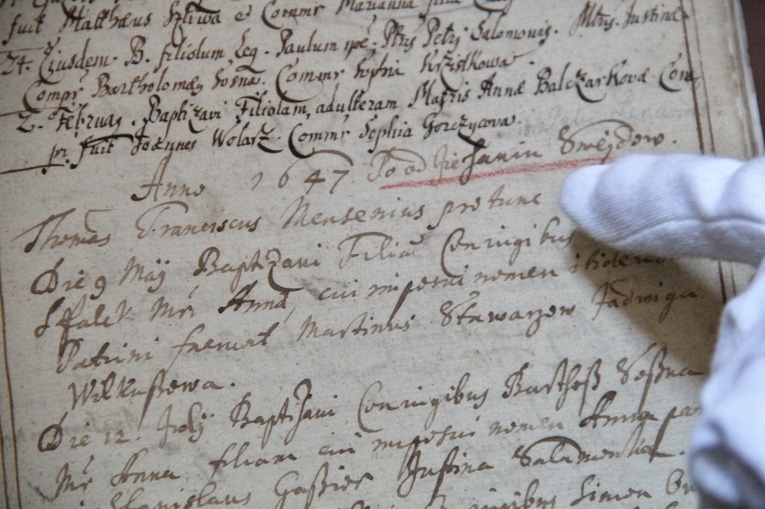 fuit Matthæus Szliwa et Commr Marianna
24. Eiusdem. B. filiolum leg. Paulum spe: Ptris Petri Salomonis. Mtris. Justinæ.
Compr Bartholomæ Sosna. Commr
2. Februar. Baptizavi Filiolam, adulteram Matris Annæ Balczarkovæ Com
pr. fuit Joannes Wolarz. Commr Sophia Gorzycova.
Anno 1647 Po odjechaniu Smejdow.
Thomas Franciscus Mensenius pro tunc
Die 9 Maij Baptizavi Filiã Coniugibus
Mr Anna, cui imposui nomen itidem
Patrini fuerunt Martinus Stawarzow Jadwiga
Wilkussewa.
Die 12. July Baptizavi Coniugibus Barthoss Sossna
Mr Anna, filiam cui imposui nomen Anna
Stanislaus Justina
Simon